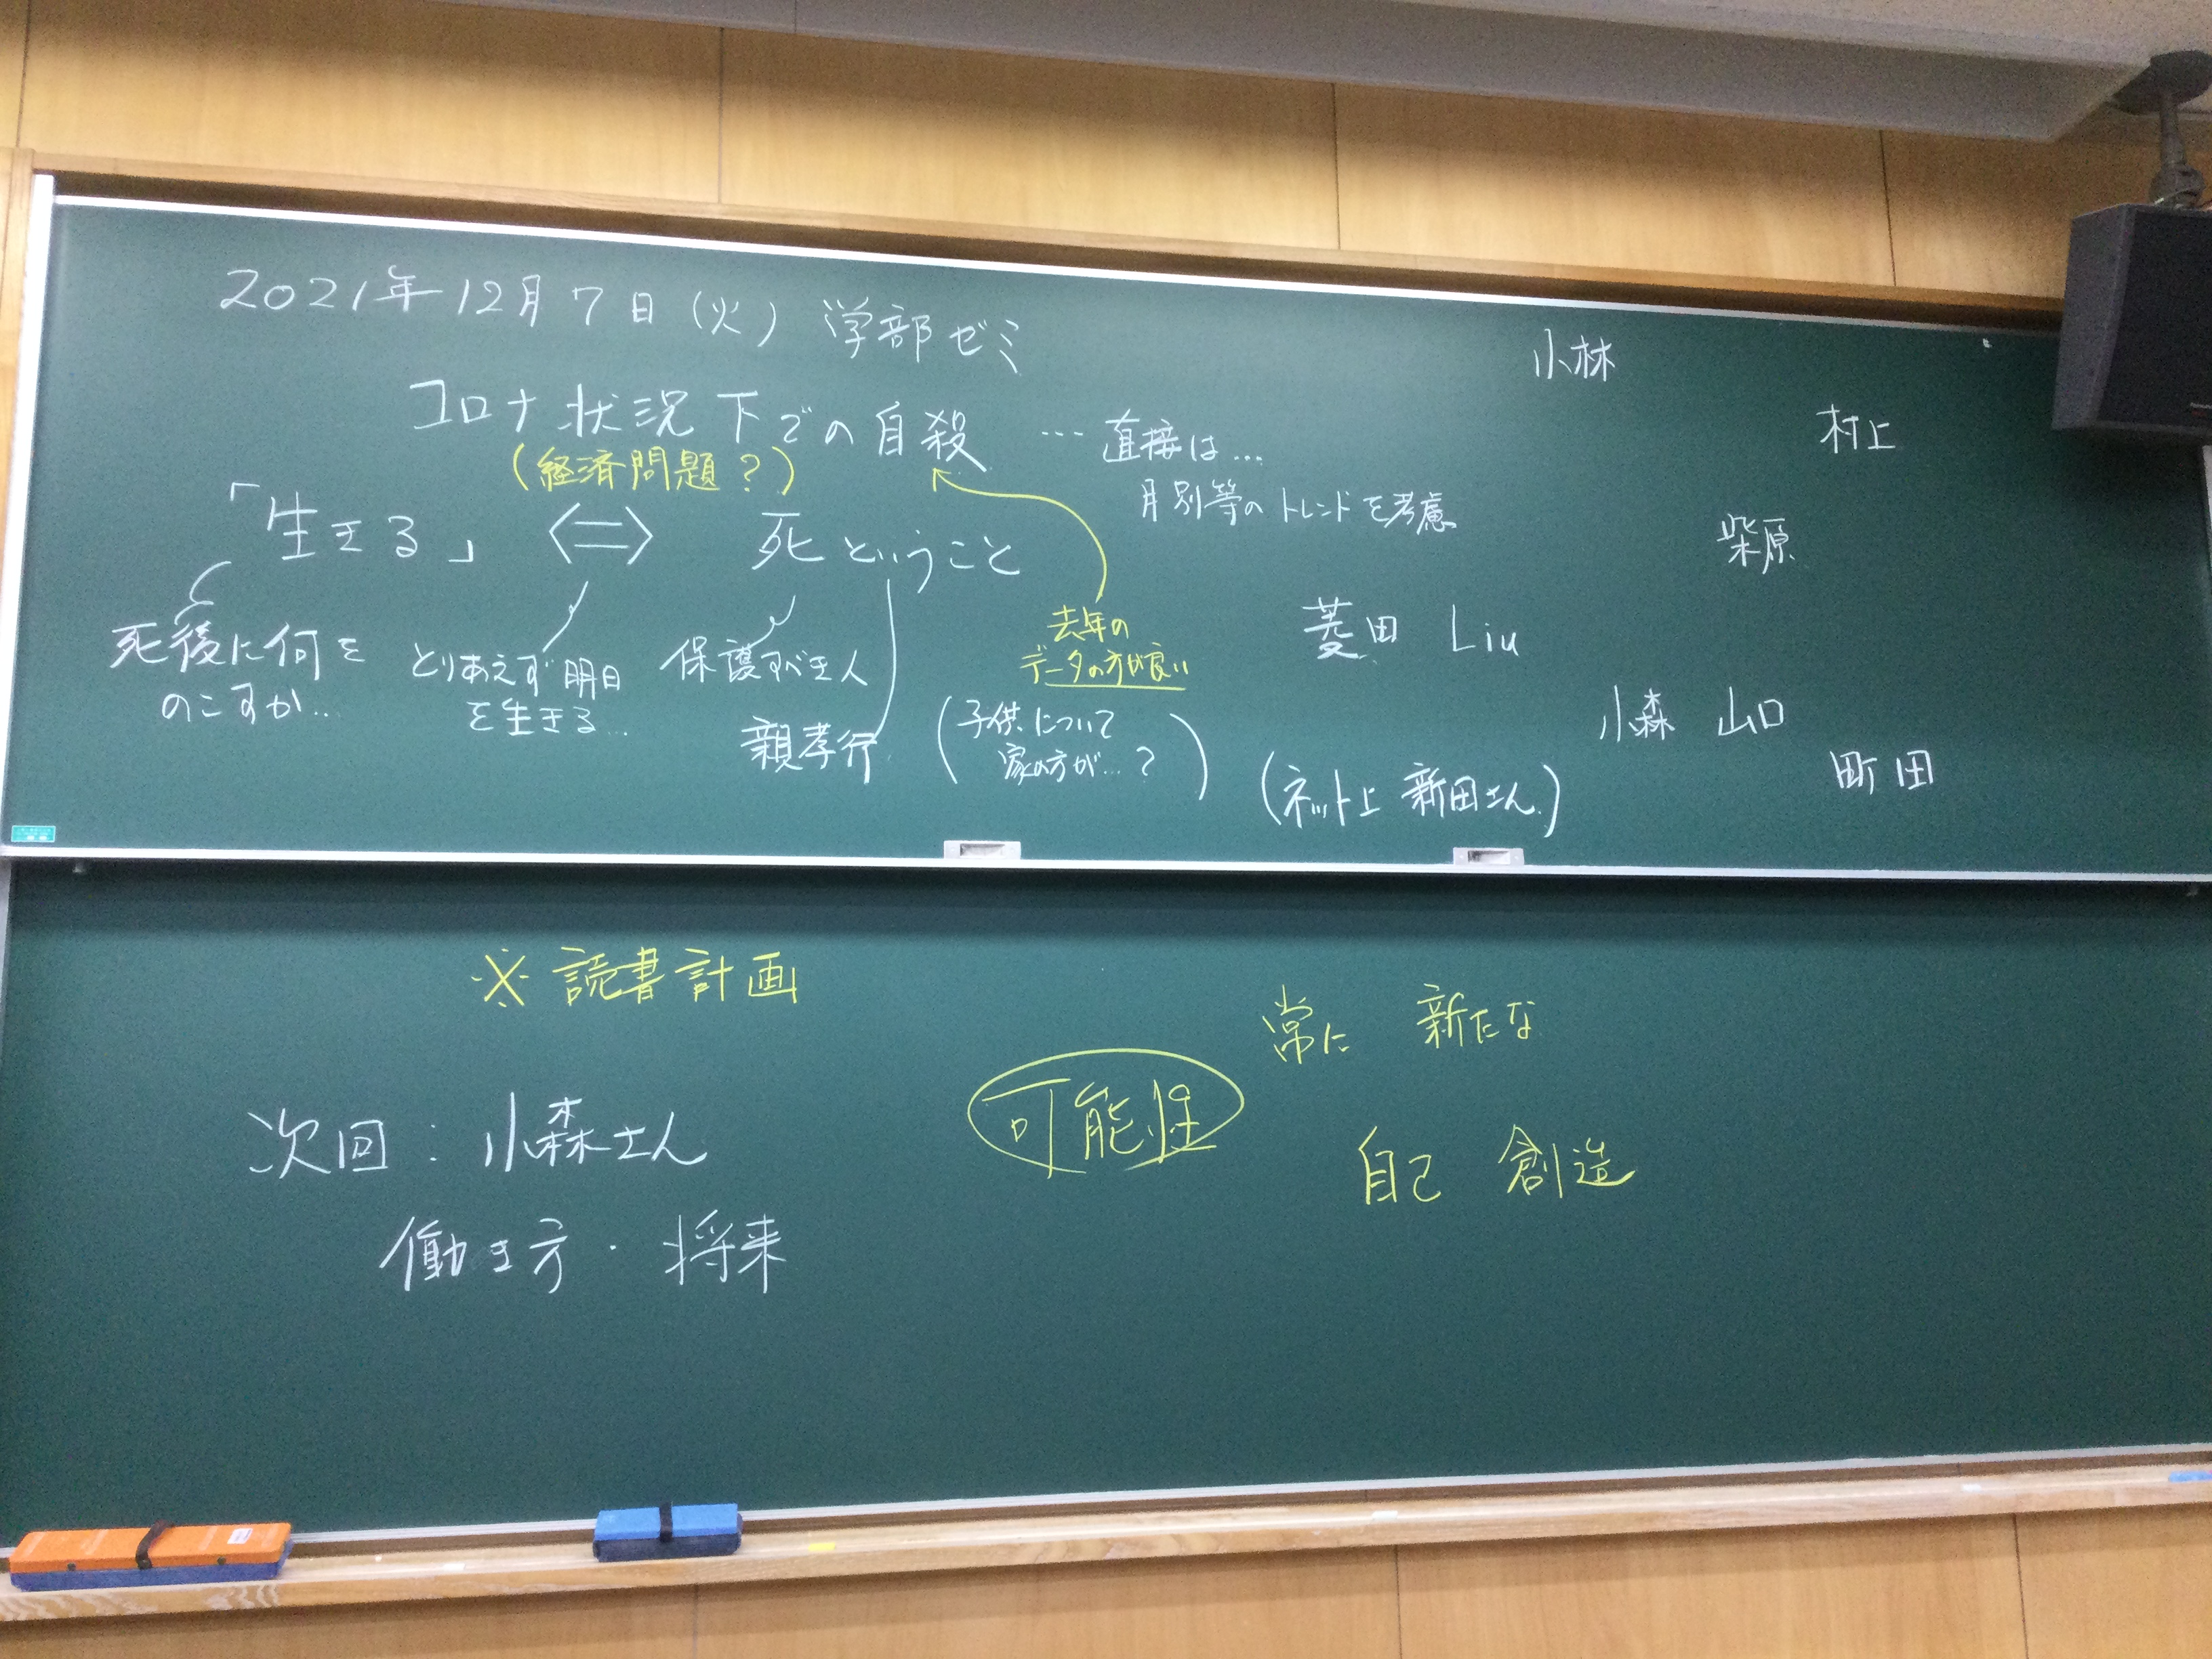 2021年12月7日(火) 学部ゼミ
コロナ状況下での自殺 … 直接は…
月別等のトレンドを考慮
(経済問題?)
「生きる」 ⇔ 死ということ
死後に何を
のこすか…
とりあえず明日
を生きる…
保護すべき人
親孝行
(子供について
家の方が…?)
去年の
データの方が良い
小林
村上
柴原
菱田 Liu
小森 山口
町田
(ネット上 新田さん)
※読書計画
次回:小森さん
働き方・将来
可能性
常に 新たな
自己 創造